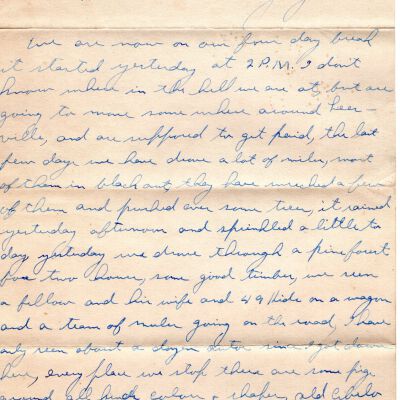 We are now on our four day break
it started yesterday at 2 P.M. I don't
know where in the hell we are at, but are
going to move some where around Lees-
ville, and are supposed to get paid, the last
few days we have drove a lot of miles, most
of them in black out, they have wrecked a few
of them and pushed over some trees, it rained
yesterday afternoon and sprinkled a little to
day yesterday we drove through a pine forest
for two hours, some good timber, we seen
a fellow and his wife and 4 kids on a wagon
and a team of mules going on the road, I have
only seen about a dozen autos since I got down
here, every place we stop there are some pigs
around all kinds colors & shapes, old